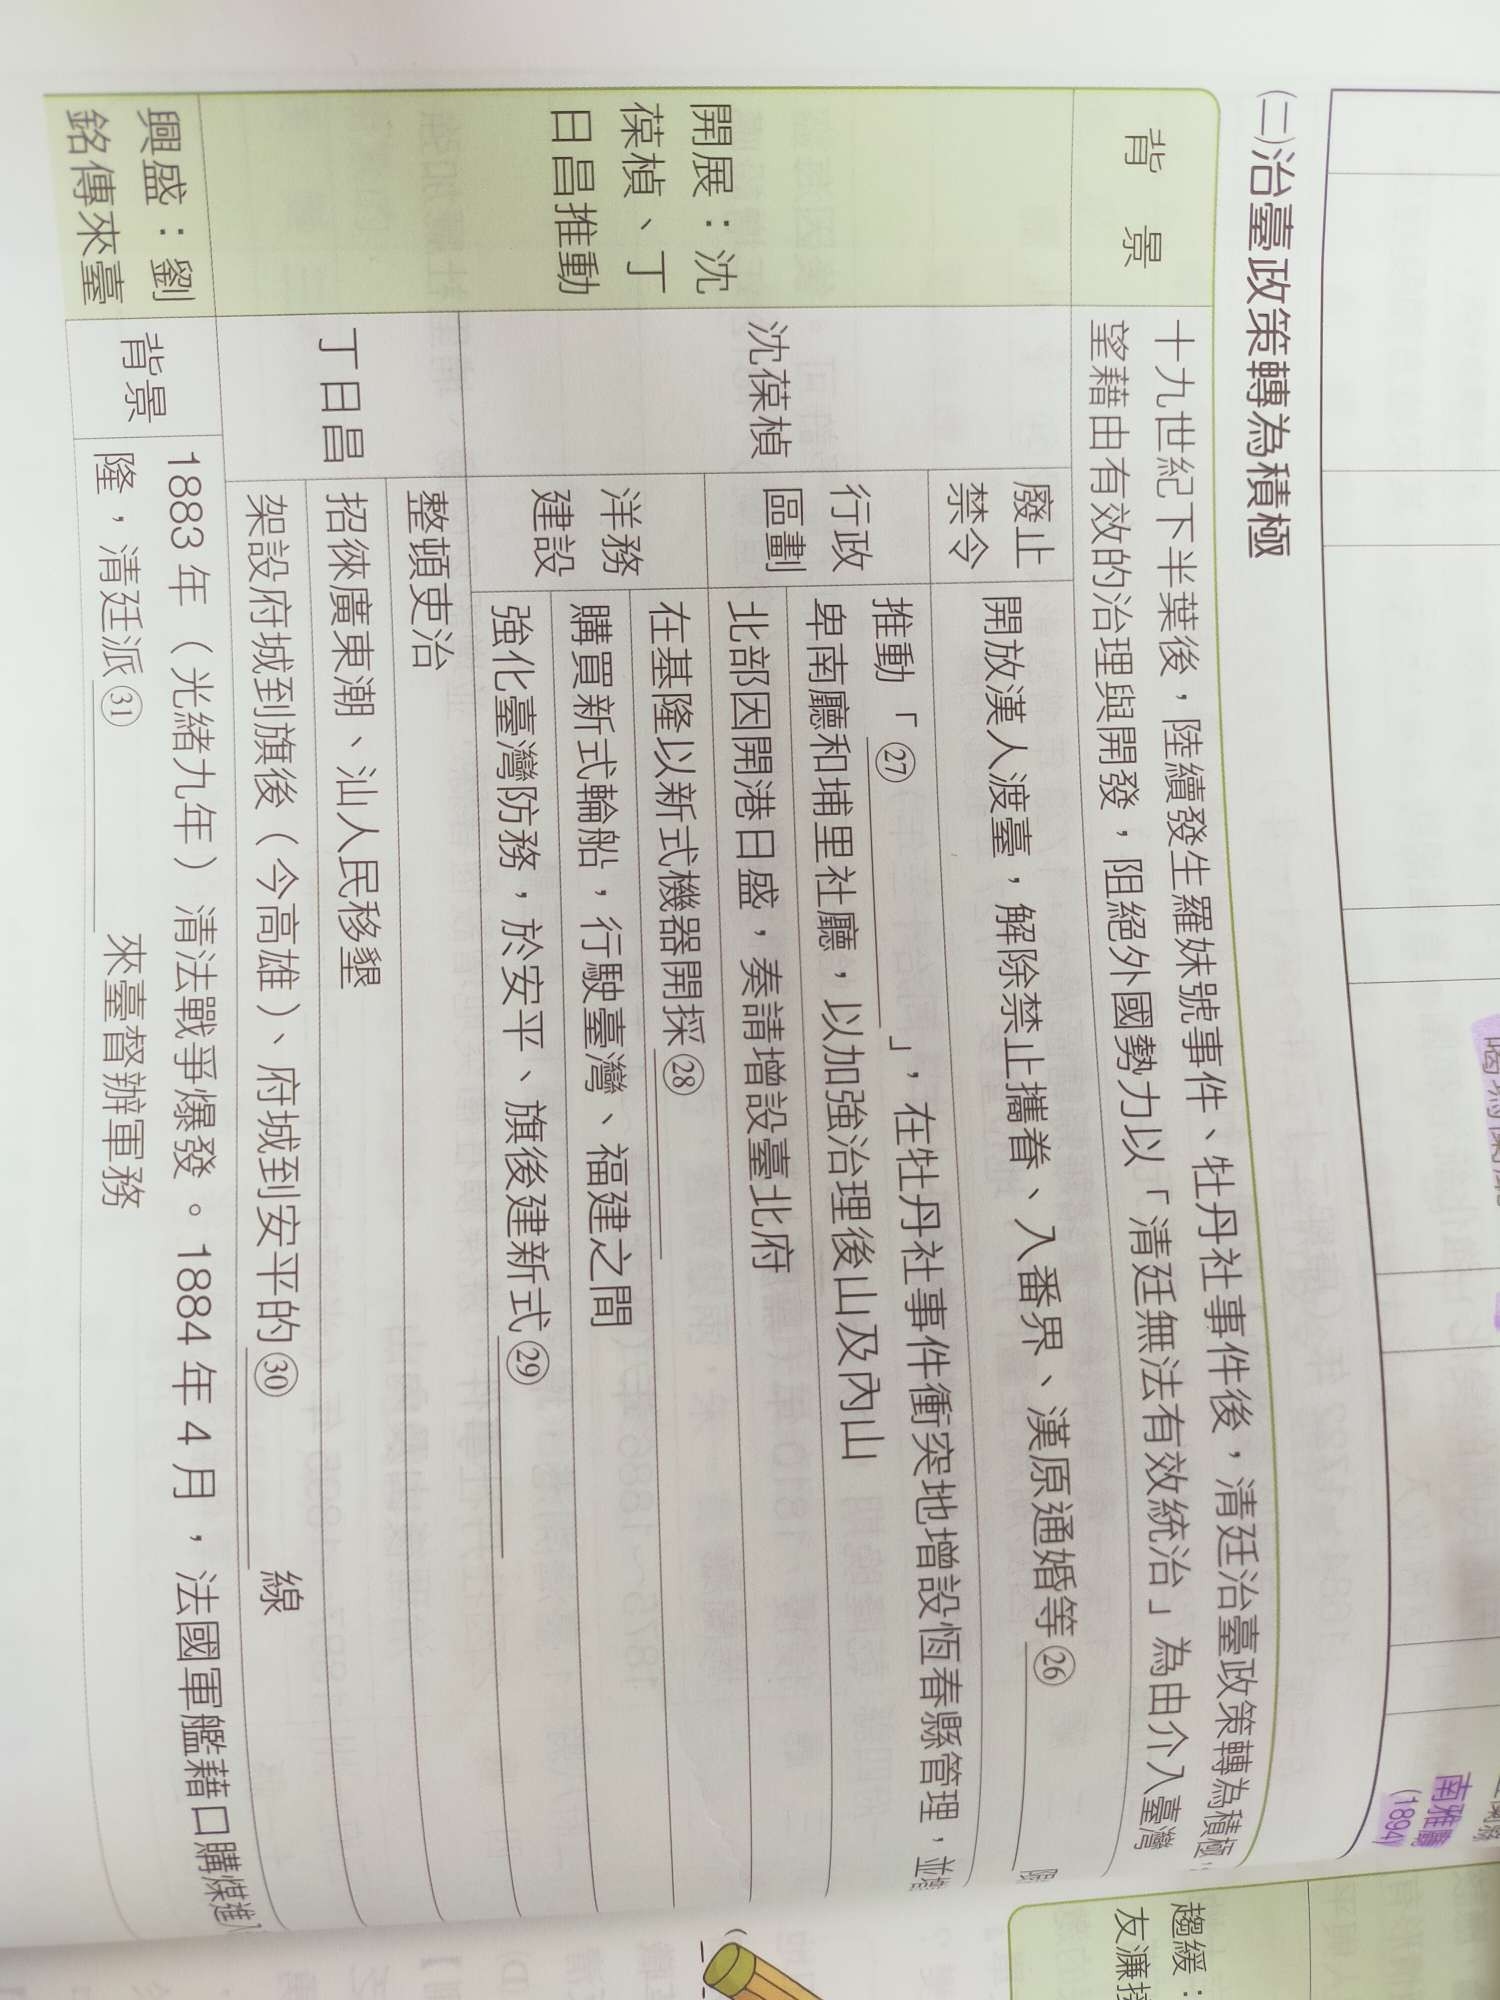 南雅廳
(1894)
(二)治臺政策轉為積極
背景
十九世紀下半葉後，陸續發生羅妹號事件、牡丹社事件後，清廷治臺政策轉為積極，
望藉由有效的治理與開發，阻絕外國勢力以「清廷無法有效統治」為由介入臺灣
開展：沈
葆楨、丁
日昌推動
沈葆楨
廢止
禁令
開放漢人渡臺，解除禁止攜眷、入番界、漢原通婚等㉖
行政
區劃
推動「㉗＿＿＿＿」，在牡丹社事件衝突地增設恆春縣管理，並
卑南廳和埔里社廳，以加強治理後山及內山
北部因開港日盛，奏請增設臺北府
洋務
建設
在基隆以新式機器開採㉘＿＿＿＿
購買新式輪船，行駛臺灣、福建之間
強化臺灣防務，於安平、旗後建新式㉙＿＿＿＿
丁日昌
整頓吏治
招徠廣東潮、汕人民移墾
架設府城到旗後（今高雄）、府城到安平的㉚＿＿＿＿線
興盛：劉
銘傳來臺
背景
1883 年（光緒九年）清法戰爭爆發。1884 年 4 月，法國軍艦藉口購煤進
隆，清廷派㉛＿＿＿＿來臺督辦軍務
趨緩：
友濂